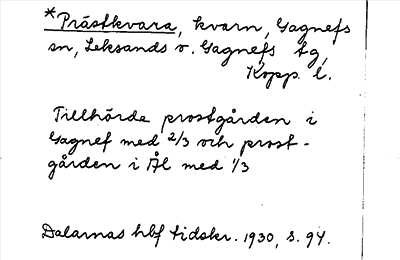 *Prästkvara, kvarn, Gagnefs
sn, Leksands o. Gagnefs tg,
Kopp l.
Tillhörde prostgården i
Gagnef med 2/3 och prost-
gården i Ål med 1/3
Dalarnas hbf tidskr. 1930, s. 94.